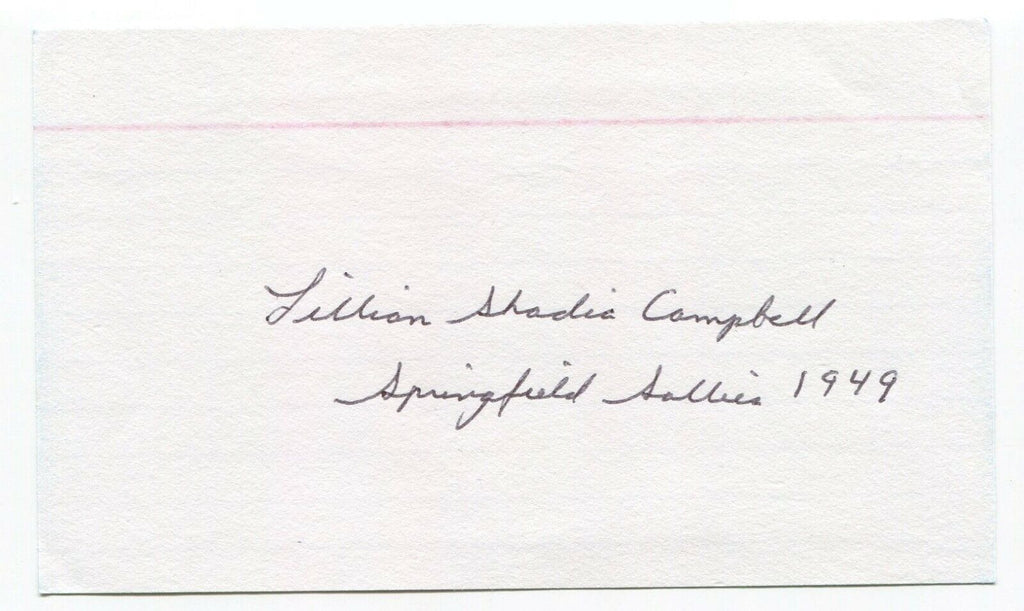 Lillian Shadic Campbell
Springfield Sallies 1949